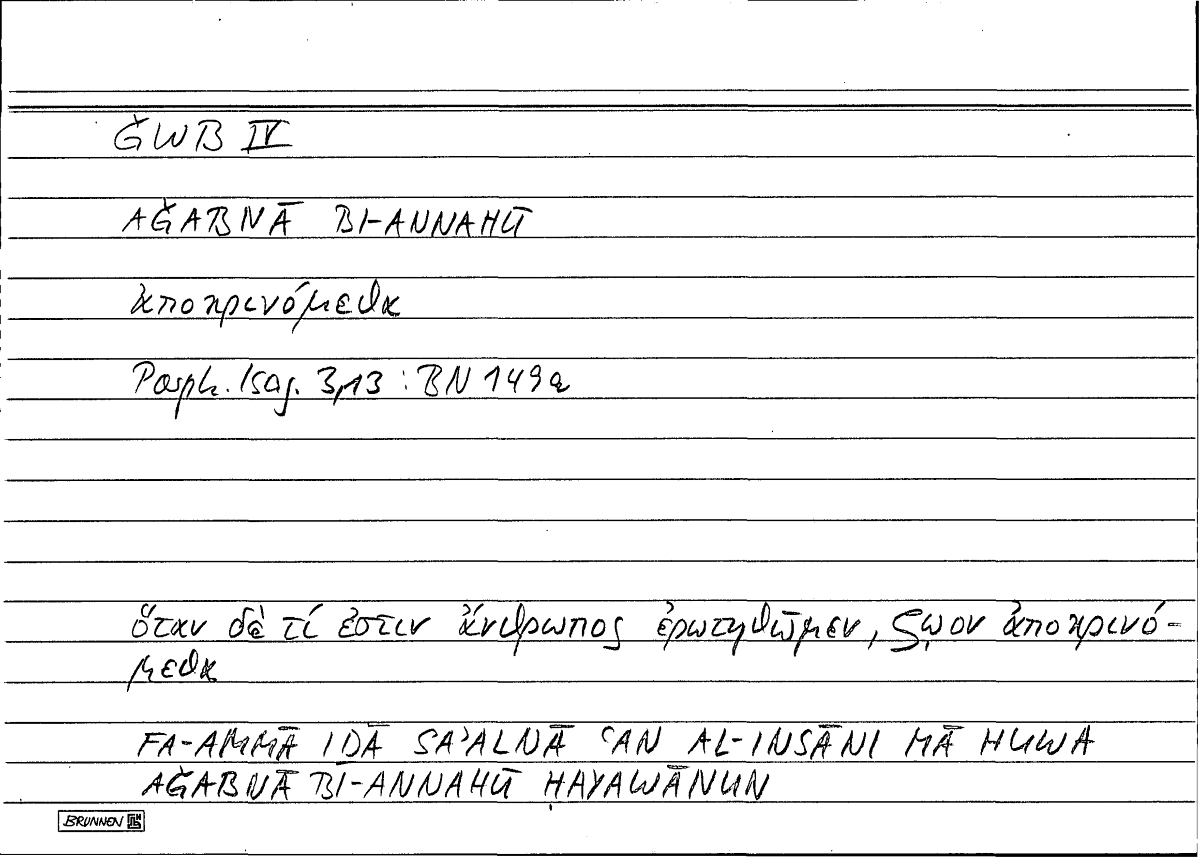 ǦWB IV
AǦABNĀ BI-ANNAHŪ
ἀποκρινόμεθα
Porph. Isag. 3,13 : BN 149a
ὅταν δὲ τί ἐστιν ἄνθρωπος ἐρωτηθῶμεν, ζῳον ἀποκρινό-
μεθα
FA-AMMĀ IDĀ SA'ALNĀ ʿAN AL-INSĀNI MĀ HUWA
AǦABNĀ BI-ANNAHŪ ḤAYAWĀNUN
BRUNNEN